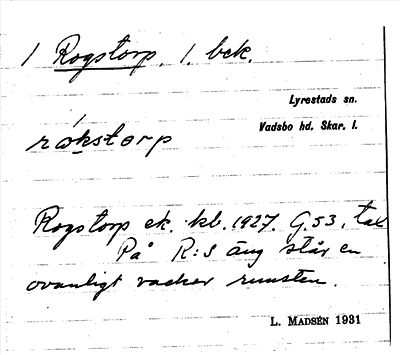 1 Rogstorp, 1. bek.
Lyrestads sn.
Vadsbo hd. Skar. l.
råkstorp
Rogstorp ek. kb. 1927. G.53, tax
På R:s äng står en
ovanligt vacker runsten.
L. MADSÉN 1931